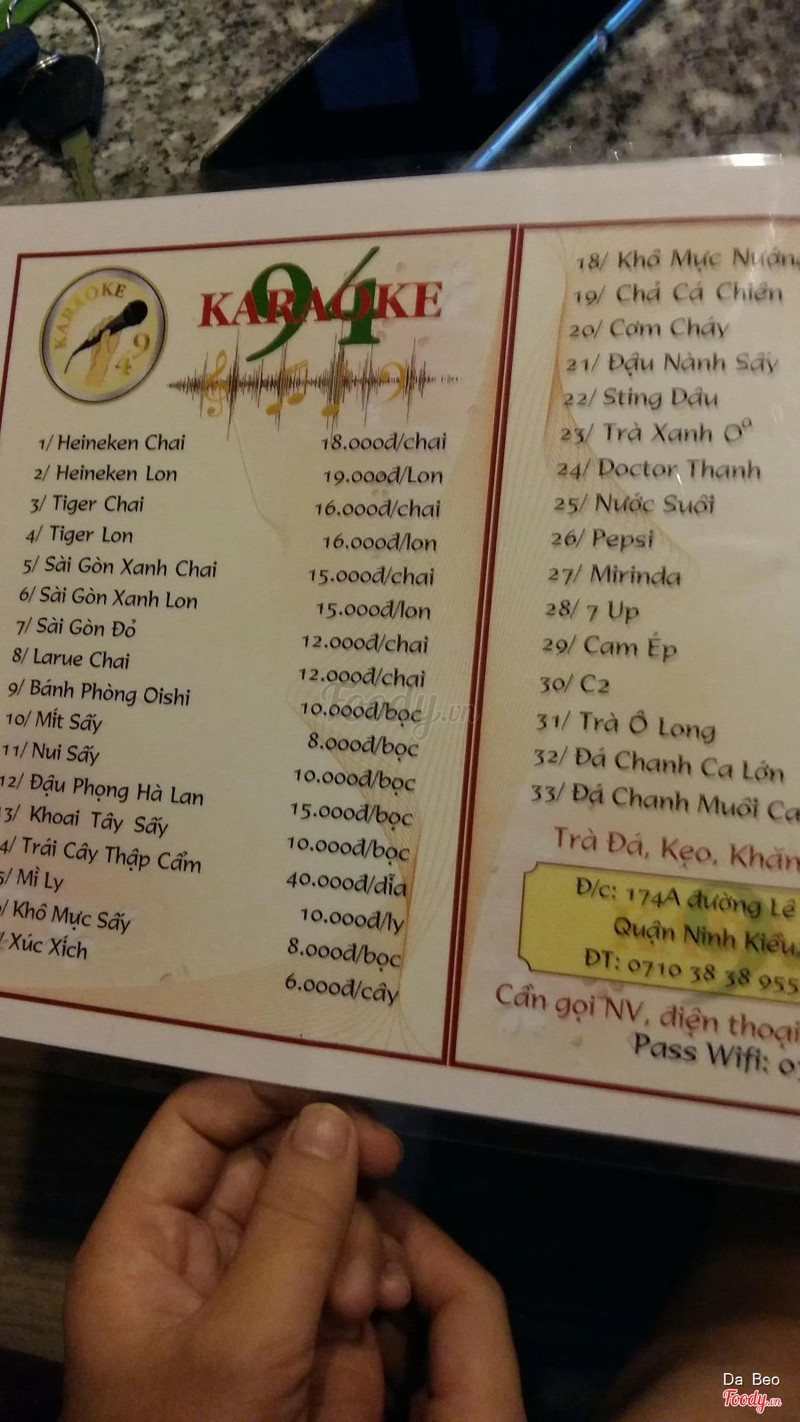 KARAOKE
94
KARAOKE 94
1/ Heineken Chai 18.000đ/chai
2/ Heineken Lon 19.000đ/Lon
3/ Tiger Chai 16.000đ/chai
4/ Tiger Lon 16.000đ/lon
5/ Sài Gòn Xanh Chai 15.000đ/chai
6/ Sài Gòn Xanh Lon 15.000đ/lon
7/ Sài Gòn Đỏ 12.000đ/chai
8/ Larue Chai 12.000đ/chai
9/ Bánh Phòng Oishi 10.000đ/bọc
10/ Mít Sấy 8.000đ/bọc
11/ Nui Sấy 10.000đ/bọc
12/ Đậu Phọng Hà Lan 15.000đ/bọc
13/ Khoai Tây Sấy 10.000đ/bọc
4/ Trái Cây Thập Cẩm 40.000đ/dĩa
5/ Mì Ly 10.000đ/ly
/ Khô Mực Sấy 8.000đ/bọc
/ Xúc Xích 6.000đ/cây
18/ Khô Mực Nướng
19/ Chả Cá Chiên
20/ Cơm Cháy
21/ Đậu Nành Sấy
22/ Sting Dâu
23/ Trà Xanh Oº
24/ Doctor Thanh
25/ Nước Suối
26/ Pepsi
27/ Mirinda
28/ 7 Up
29/ Cam Ép
30/ C2
31/ Trà Ô Long
32/ Đá Chanh Ca Lớn
33/ Đá Chanh Muối Ca
Trà Đá, Kẹo, Khăn
Đ/c: 174A đường Lê
Quận Ninh Kiều,
ĐT: 0710 38 38 955
Cần gọi NV, điện thoại
Pass Wifi: 0
Foody.vn
Da Beo
Foody.vn